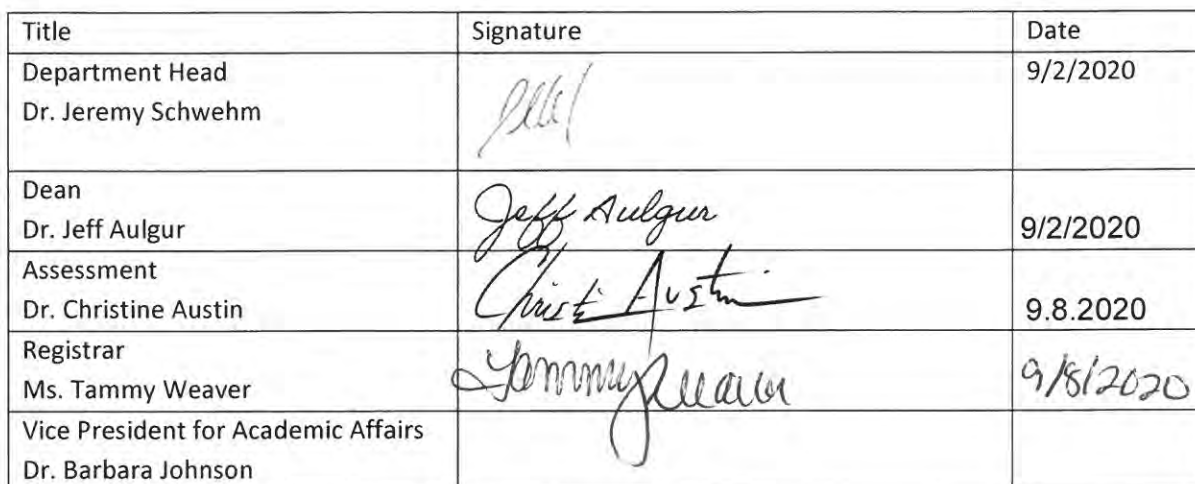 Title Signature Date
Department Head 9/2/2020
Dr. Jeremy Schwehm
Dean
Dr. Jeff Aulgur Jeff Aulgur 9/2/2020
Assessment
Dr. Christine Austin Christi Austin 9.8.2020
Registrar
Ms. Tammy Weaver Tammy Weaver 9/8/2020
Vice President for Academic Affairs
Dr. Barbara Johnson